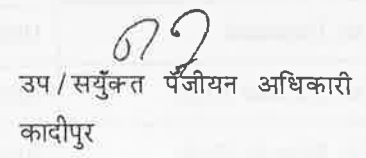 उप / सयुँक्त पँजीयन अधिकारी
कादीपुर